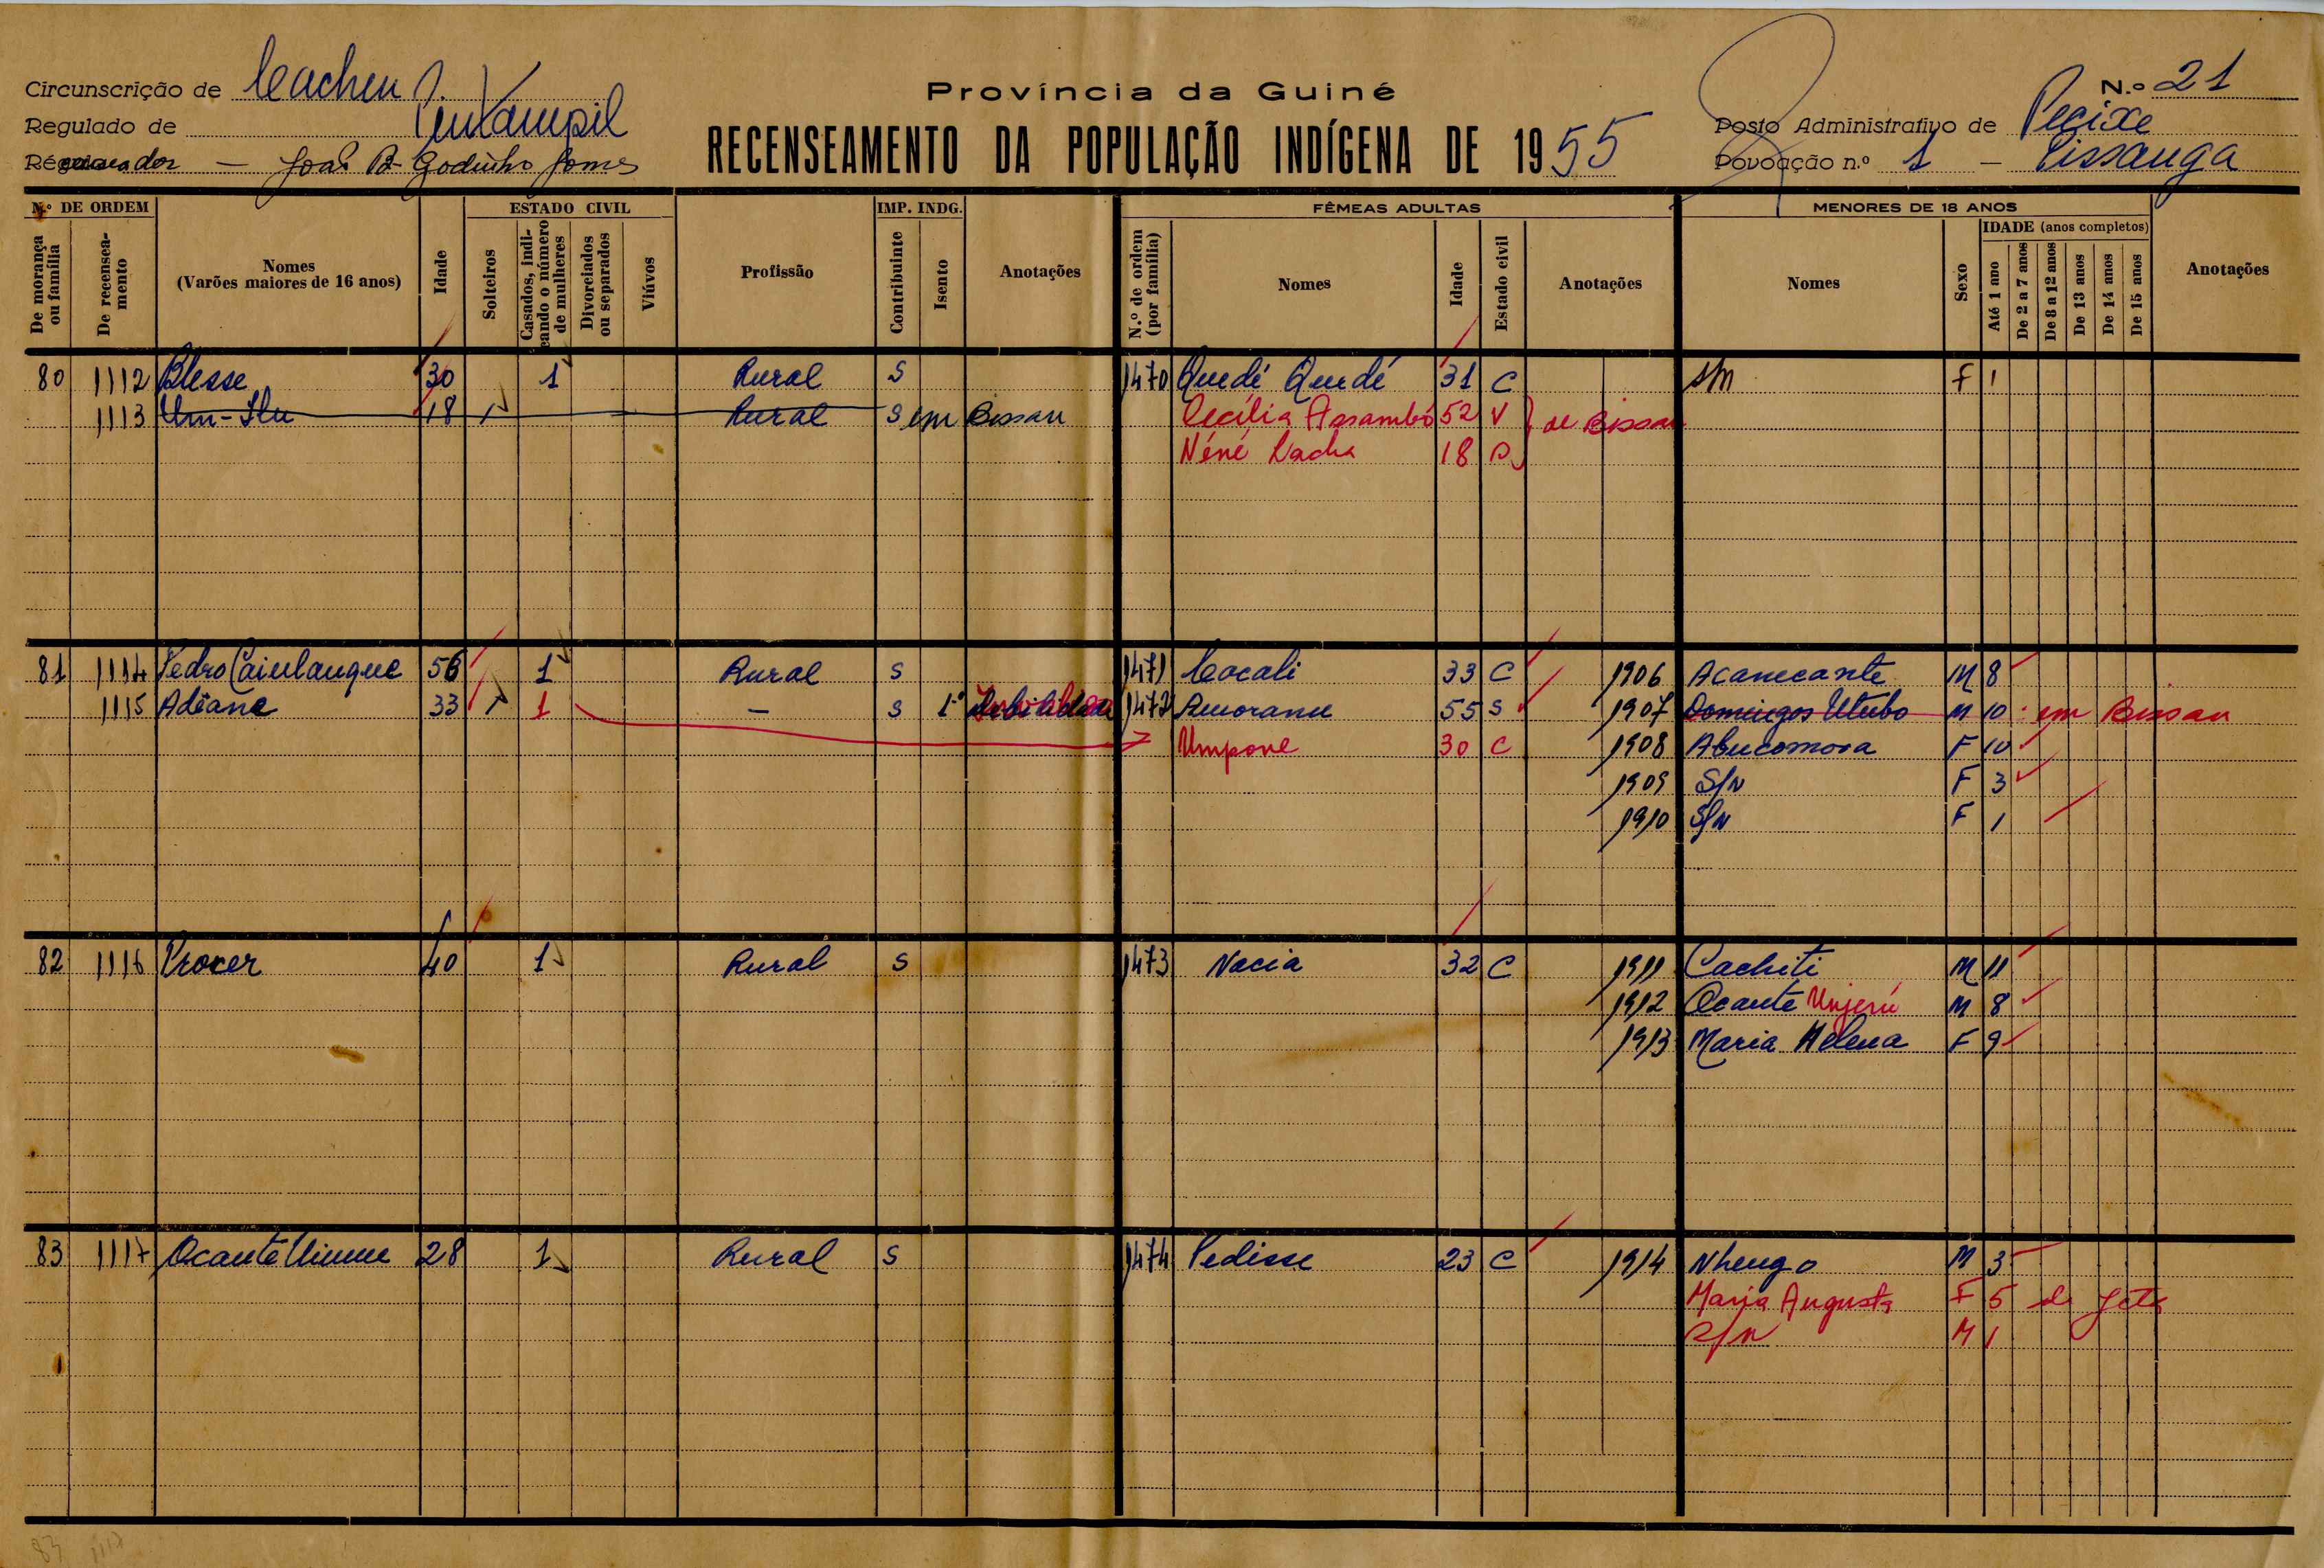 Circunscrição de Cacheu
Província da Guiné
N.º 21
Regulado de
Posto Administrativo de Pecixe
RECENSEAMENTO DA POPULAÇÃO INDÍGENA DE 1955
João B. Godinho Gomes
Povoação n.º 1 -
N.º DE ORDEM
ESTADO CIVIL
IMP. INDG.
FÊMEAS ADULTAS
MENORES DE 18 ANOS
IDADE (anos completos)
De morança ou família
De recenseamento
Nomes (Varões maiores de 16 anos)
Idade
Solteiros
Casados, indicando o número de mulheres
Divorciados ou separados
Viúvos
Profissão
Contribuinte
Isento
Anotações
N.º de ordem (por família)
Nomes
Idade
Estado civil
Anotações
Nomes
Sexo
Até 1 ano
De 2 a 7 anos
De 8 a 12 anos
De 13 anos
De 14 anos
De 15 anos
Anotações
80 1112 Blesse 30 1 Rural S 1470 Quedi Quedé 31 C F 1
1113 18 Rural S em Bissau Cecília Assambó 52 V de Bissau
Néné 18 S
81 1114 Pedro Caiulangue 56 1 Rural S 1471 Cacali 33 C 1906 Acanecante M 8
1115 Adiane 33 1 - S 1472 55 S 1907 Domingos Utubo M 10 em Bissau
Umpone 30 C 1908 Abucomosa F 10
1909 S/N F 3
1910 S/N F 1
82 1116 Procer 40 1 Rural S 1473 Nacia 32 C 1911 Cachiti M 11
1912 Ocante Unjerú M 8
1913 Maria Helena F 9
83 1117 Ocante 28 1 Rural S 1474 Pedisse 23 C 1914 Nhengo M 3
Maria Augusta F 5 de Jeta
S/N M 1
83 1117